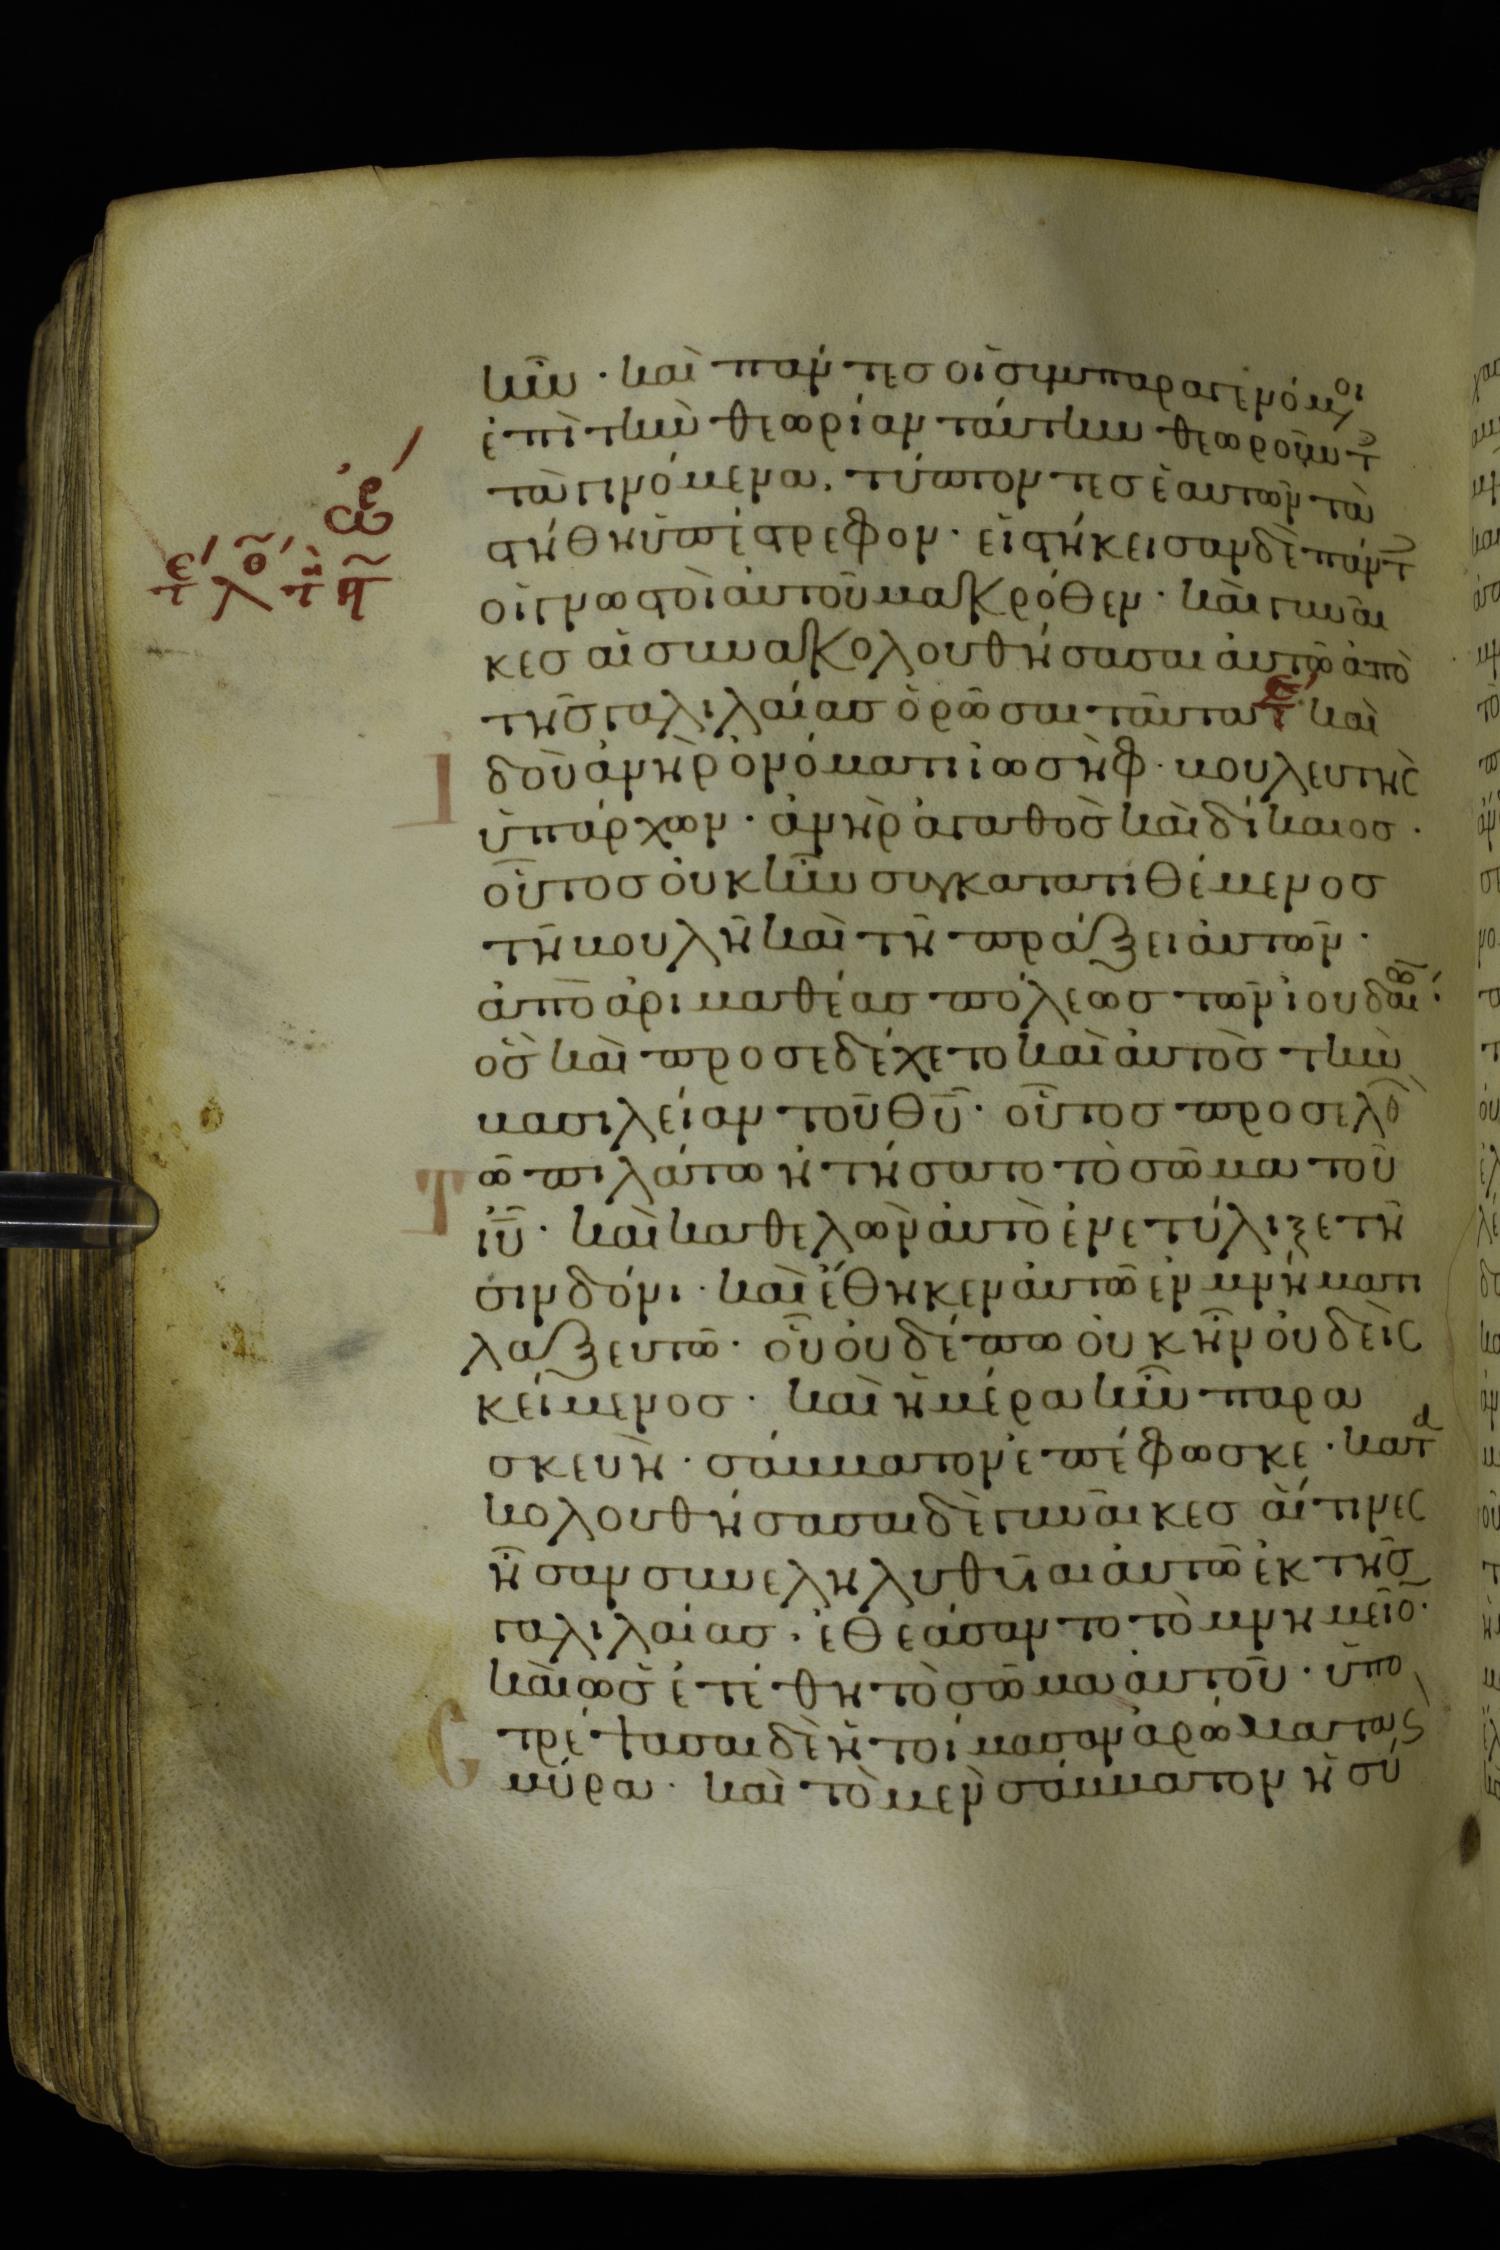 ἦν · καὶ πάντες οἱ συμπαραγενόμενοι
ἐπὶ τὴν θεωρίαν ταύτην θεωροῦντες
τὰ γενόμενα · τύπτοντες ἑαυτῶν τὰ
στήθη ὑπέστρεφον · εἱστήκεισαν δὲ πάντες
οἱ γνωστοὶ αὐτοῦ μακρόθεν · καὶ γυναῖ
κες αἱ συνακολουθήσασαι αὐτῶ ἀπὸ
τῆς γαλιλαίας ὁρῶσαι ταῦτα · καὶ
ἰδοὺ ἀνὴρ ὀνόματι ἰωσὴφ · βουλευτὴς
ὑπάρχων · ἀνὴρ ἀγαθὸς καὶ δίκαιος ·
οὗτος οὐκ ἦν συγκατατιθέμενος
τῆ βουλῆ καὶ τῆ πράξει αὐτῶν ·
ἀπὸ ἀριμαθέας πόλεως τῶν ἰουδαί ·
ὃς καὶ προσεδέχετο καὶ αὐτὸς τὴν
βασιλείαν τοῦ θῦ · οὗτος προσελθ
ὼ πιλάτω ἠτήσατο τὸ σῶμα τοῦ
ἰῦ · καὶ καθελὼν αὐτὸ ἐνετύλιξε τῆ
σινδόνι · καὶ ἔθηκεν αὐτῶ ἐν μνήματι
λαξευτῶ · οὗ οὐδέπω οὐκ ἦν οὐδεὶς
κείμενος · καὶ ἡμέρα ἦν παρα
σκευὴ · σάββατον ἐπέφωσκε · κατα
κολουθήσασαι δὲ γυναῖκες αἵτινες
ἦσαν συνεληλυθῦιαι αὐτῶ ἐκ τῆς
γαλιλαίας · ἐθεάσαντο τὸ μνημεῖο ·
καὶ ὡς ἐτέθη τὸ σῶμα αὐτοῦ · ὑπο
στρέψασαι δὲ ἡτοίμασαν ἀρώματα καὶ
μύρα · καὶ τὸ μὲν σάββατον ἡσύ